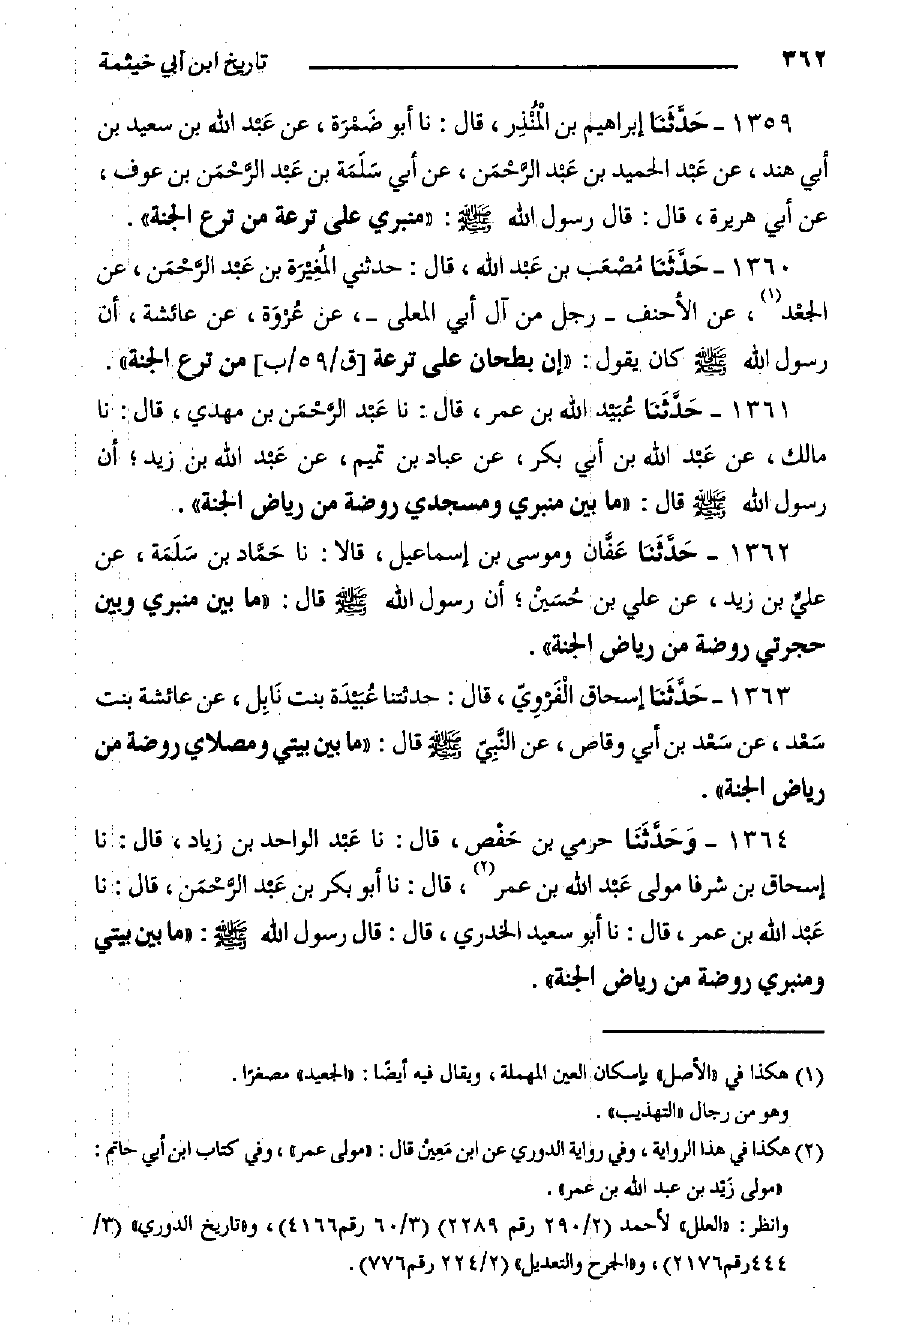 ٣٦٢ تاريخ ابن أبي خيثمة
١٣٥٩ - حَدَّثَنَا إبراهيم بن الْمُنْذِر ، قال : نا أبو ضَمْرَة ، عن عَبْد الله بن سعيد بن
أبي هند ، عن عَبْد الحميد بن عَبْد الرَّحْمَن ، عن أبي سَلَمَة بن عَبْد الرَّحْمَن بن عوف ،
عن أبي هريرة ، قال : قال رسول الله ﷺ : «منبري على ترعة من ترع الجنة» .
١٣٦٠ - حَدَّثَنَا مُصْعَب بن عَبْد الله ، قال : حدثني المُغِيْرَة بن عَبْد الرَّحْمَن ، عن
الجَعْد(١) ، عن الأحنف - رجل من آل أبي المعلى - ، عن عُرْوَة ، عن عائشة ، أن
رسول الله ﷺ كان يقول : «إن بطحان على ترعة [ق/٥٩/ب] من ترع الجنة» .
١٣٦١ - حَدَّثَنَا عُبَيْد الله بن عمر ، قال : نا عَبْد الرَّحْمَن بن مهدي ، قال : نا
مالك ، عن عَبْد الله بن أبي بكر ، عن عباد بن تميم ، عن عَبْد الله بن زيد ؛ أن
رسول الله ﷺ قال : «ما بين منبري ومسجدي روضة من رياض الجنة» .
١٣٦٢ - حَدَّثَنَا عَفَّان وموسى بن إسماعيل ، قالا : نا حَمَّاد بن سَلَمَة ، عن
عليّ بن زيد ، عن علي بن حُسَيْنٍ ؛ أن رسول الله ﷺ قال : «ما بين منبري وبين
حجرتي روضة من رياض الجنة» .
١٣٦٣ - حَدَّثَنَا إسحاق الْفَرْوِيّ ، قال : حدثتنا عُبَيْدَة بنت نَابِل ، عن عائشة بنت
سَعْد ، عن سَعْد بن أبي وقاص ، عن النَّبِيّ ﷺ قال : «ما بين بيتي ومصلاي روضة من
رياض الجنة» .
١٣٦٤ - وَحَدَّثَنَا حرمي بن حَفْص ، قال : نا عَبْد الواحد بن زياد ، قال : نا
إسحاق بن شرفا مولى عَبْد الله بن عمر(٢) ، قال : نا أبو بكر بن عَبْد الرَّحْمَن ، قال : نا
عَبْد الله بن عمر ، قال : نا أبو سعيد الخدري ، قال : قال رسول الله ﷺ : «ما بين بيتي
ومنبري روضة من رياض الجنة» .
(١) هكذا في «الأصل» بإسكان العين المهملة ، ويقال فيه أيضًا : «الجعيد» مصغرًا .
وهو من رجال «التهذيب» .
(٢) هكذا في هذا الرواية ، وفي رواية الدوري عن ابن مَعِيْن قال : «مولى عمر» ، وفي كتاب ابن أبي حاتم :
«مولى زَيْد بن عبد الله بن عمر» .
وانظر : «العلل» لأحمد (٢/ ٢٩٠ رقم ٢٢٨٩) (٣/ ٦٠ رقم ٤١٦٦) ، و«تاريخ الدوري» (٣/
٤٤٤ رقم ٢١٧٦) ، و«الجرح والتعديل» (٢/ ٢٢٤ رقم ٧٧٦) .